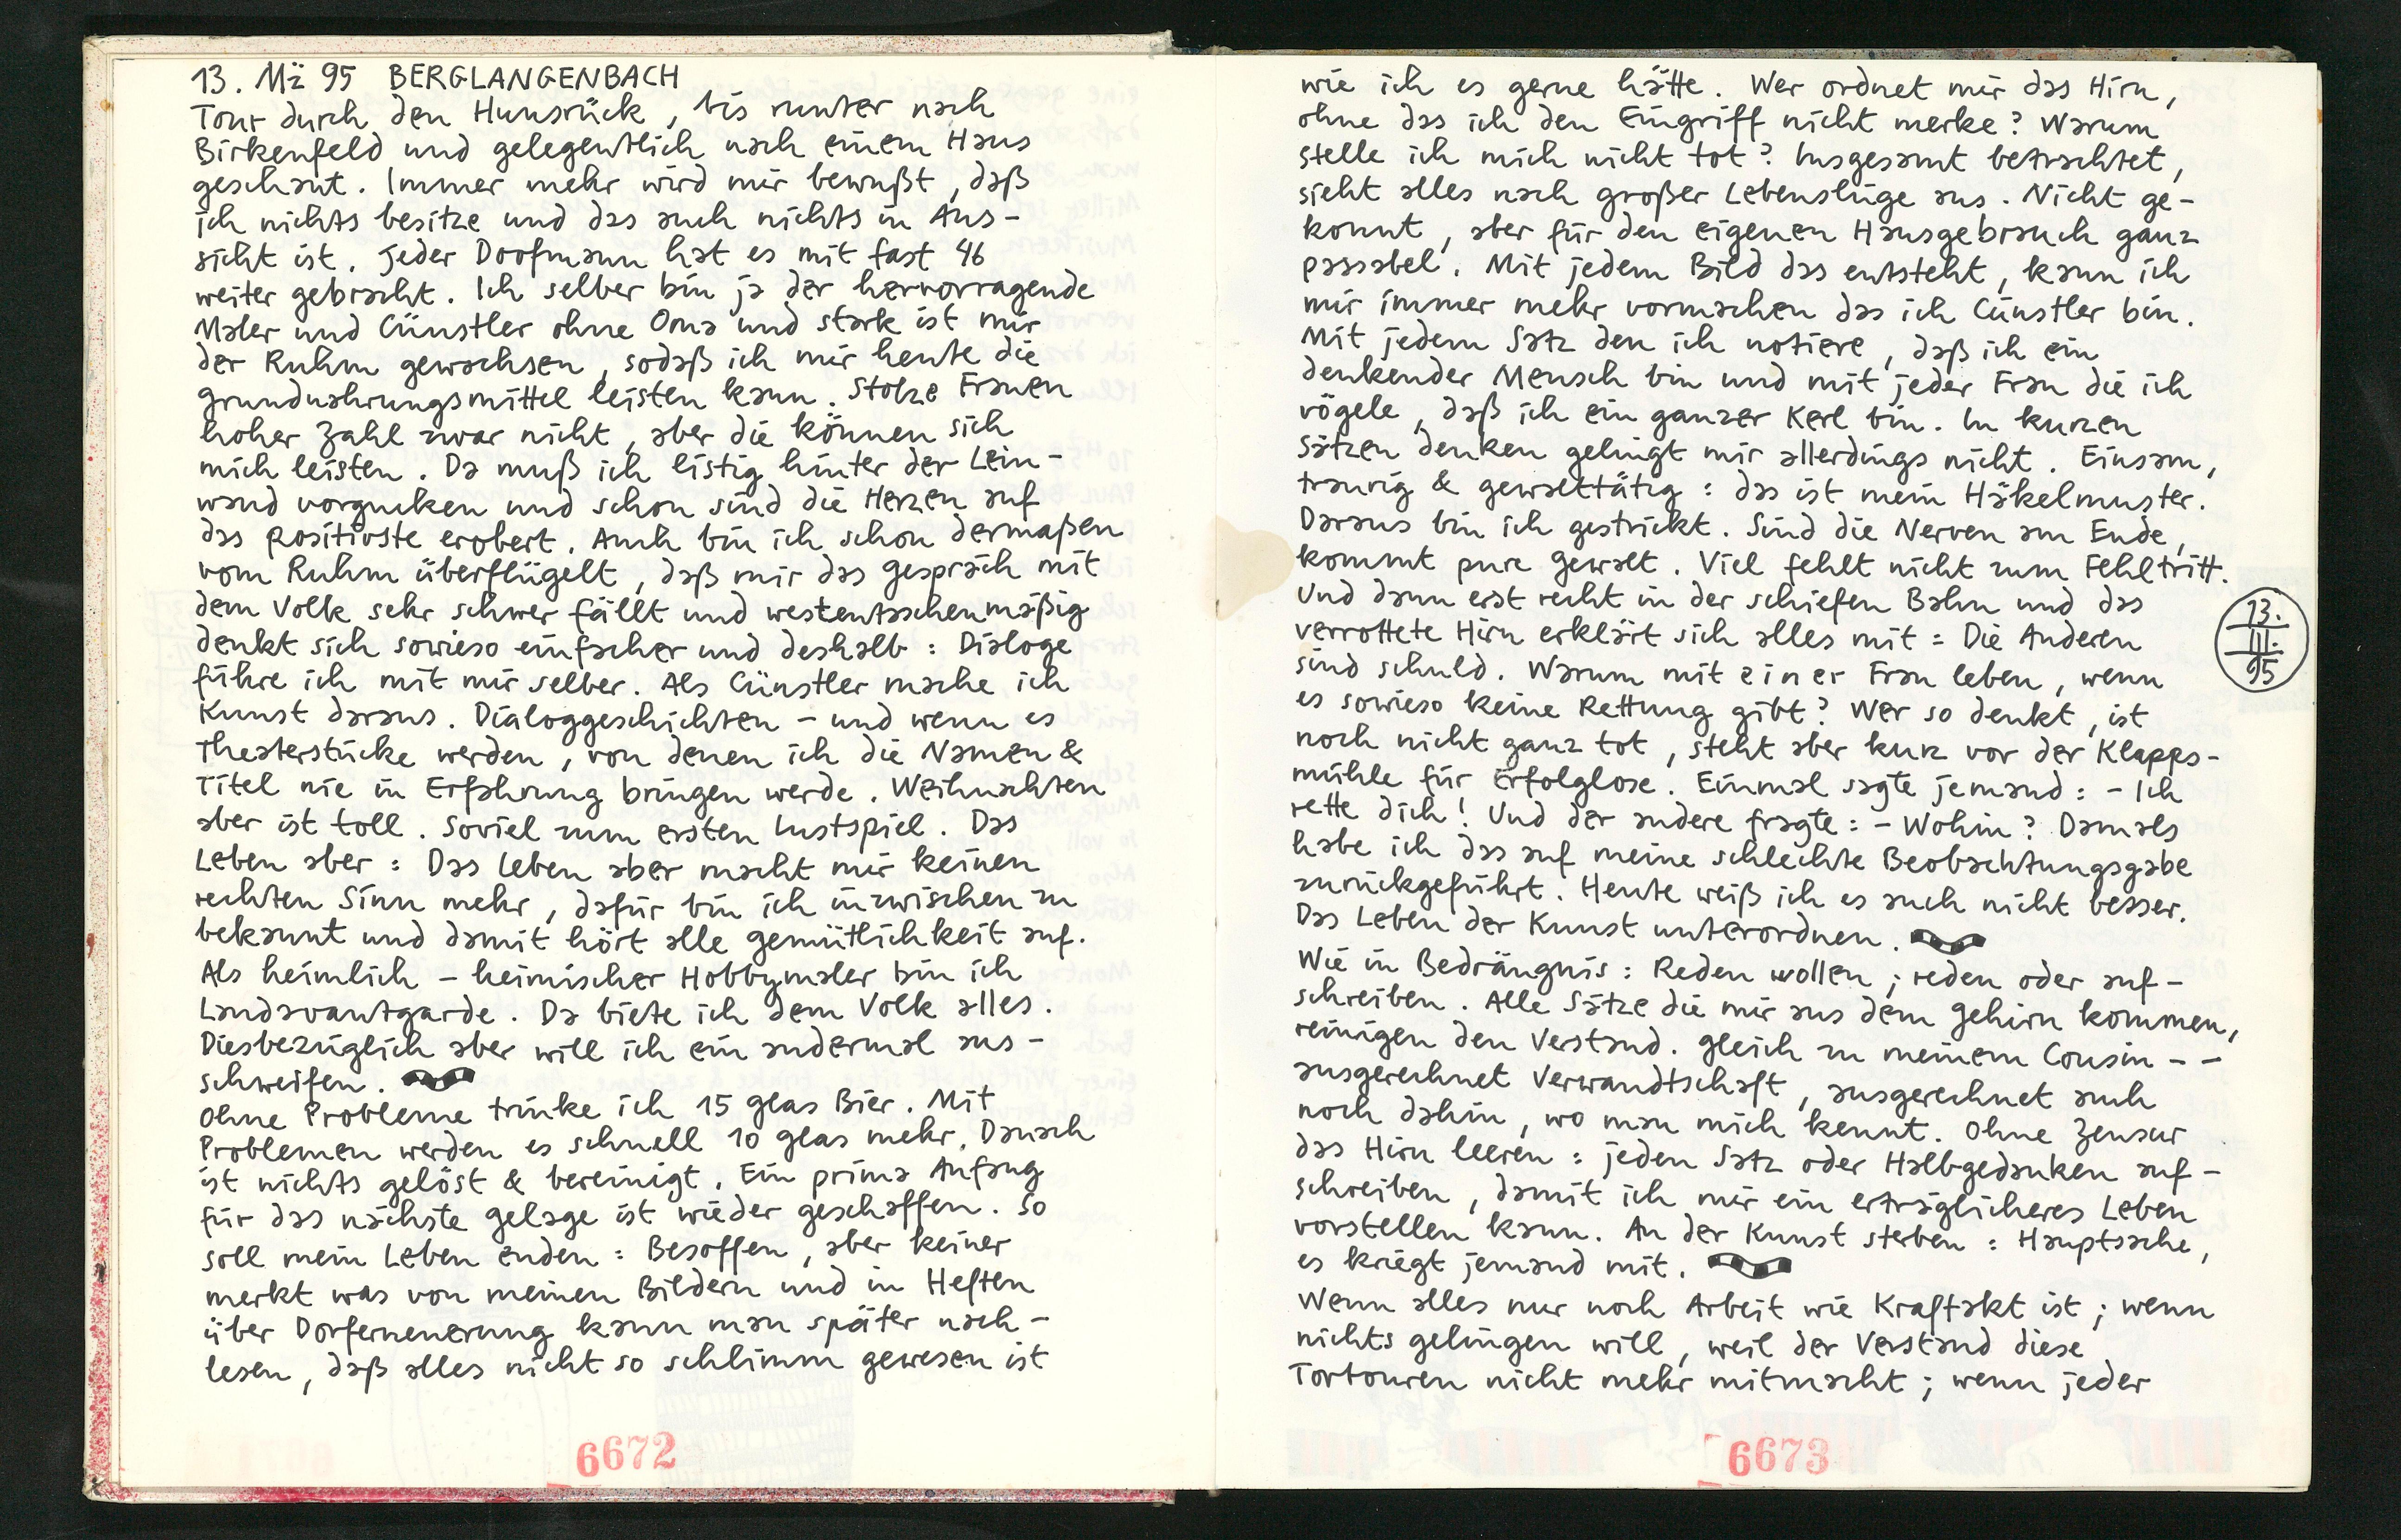 13. Mä 95 BERGLANGENBACH
Tour durch den Hunsrück, bis runter nach
Birkenfeld und gelegentlich nach einem Haus
geschaut. Immer mehr wird mir bewußt, daß
ich nichts besitze und das auch nichts in Aus-
sicht ist. Jeder Doofmann hat es mit fast 46
weiter gebracht. Ich selber bin ja der hervorragende
Maler und Cünstler ohne Oma und stark ist mir
der Ruhm gewachsen, sodaß ich mir heute die
grundnahrungsmittel leisten kann. Stolze Frauen
hoher Zahl zwar nicht, aber die können sich
mich leisten. Da muß ich listig hinter der Lein-
wand vorgucken und schon sind die Herzen auf
das positivste erobert. Auch bin ich schon dermaßen
vom Ruhm überflügelt, daß mir das gespräch mit
dem Volk sehr schwer fällt und westentaschenmäßig
denkt sich sowieso einfacher und deshalb: Dialoge
führe ich mit mir selber. Als Cünstler mache ich
Kunst daraus. Dialoggeschichten – und wenn es
Theaterstücke werden, von denen ich die Namen &
Titel nie in Erfahrung bringen werde. Weihnachten
aber ist toll. Soviel zum ersten Lustspiel. Das
Leben aber: Das Leben aber macht mir keinen
rechten Sinn mehr, dafür bin ich inzwischen zu
bekannt und damit hört alle gemütlichkeit auf.
Als heimlich – heimischer Hobbymaler bin ich
Landavantgarde. Da biete ich dem Volk alles.
Diesbezüglich aber will ich ein andermal aus-
schweifen.
Ohne Probleme trinke ich 15 glas Bier. Mit
Problemen werden es schnell 10 glas mehr. Danach
ist nichts gelöst & bereinigt. Ein prima Anfang
für das nächste gelage ist wieder geschaffen. So
soll mein Leben enden: Besoffen, aber keiner
merkt was von meinen Bildern und in Heften
über Dorferneuerung kann man später nach-
lesen, daß alles nicht so schlimm gewesen ist
6672
wie ich es gerne hätte. Wer ordnet mir das Hirn,
ohne das ich den Eingriff nicht merke? Warum
stelle ich mich nicht tot? Insgesamt betrachtet,
sieht alles nach großer Lebenslüge aus. Nicht ge-
konnt, aber für den eigenen Hausgebrauch ganz
passabel. Mit jedem Bild das entsteht, kann ich
mir immer mehr vormachen das ich Cünstler bin.
Mit jedem Satz den ich notiere, daß ich ein
denkender Mensch bin und mit jeder Frau die ich
vögele, daß ich ein ganzer Kerl bin. In kurzen
Sätzen denken gelingt mir allerdings nicht. Einsam,
traurig & gewalttätig: das ist mein Häkelmuster.
Daraus bin ich gestrickt. Sind die Nerven am Ende,
kommt pure gewalt. Viel fehlt nicht zum Fehltritt.
Und dann erst recht in der schiefen Bahn und das
verrottete Hirn erklärt sich alles mit: Die Anderen
sind schuld. Warum mit einer Frau leben, wenn
es sowieso keine Rettung gibt? Wer so denkt, ist
noch nicht ganz tot, steht aber kurz vor der Klapps-
mühle für Erfolglose. Einmal sagte jemand: – Ich
rette dich! Und der andere fragte: – Wohin? Damals
habe ich das auf meine schlechte Beobachtungsgabe
zurückgeführt. Heute weiß ich es auch nicht besser.
Das Leben der Kunst unterordnen.
Wie in Bedrängnis: Reden wollen; reden oder auf-
schreiben. Alle Sätze die mir aus dem gehirn kommen,
reinigen den Verstand. gleich zu meinem Cousin – –
ausgerechnet Verwandtschaft, ausgerechnet auch
noch dahin, wo man mich kennt. Ohne Zensur
das Hirn leeren: jeden Satz oder Halbgedanken auf-
schreiben, damit ich mir ein erträglicheres Leben
vorstellen kann. An der Kunst sterben: Hauptsache,
es kriegt jemand mit.
Wenn alles nur noch Arbeit wie Kraftakt ist; wenn
nichts gelingen will, weil der Verstand diese
Tortouren nicht mehr mitmacht; wenn jeder
13.
III.
95
6673